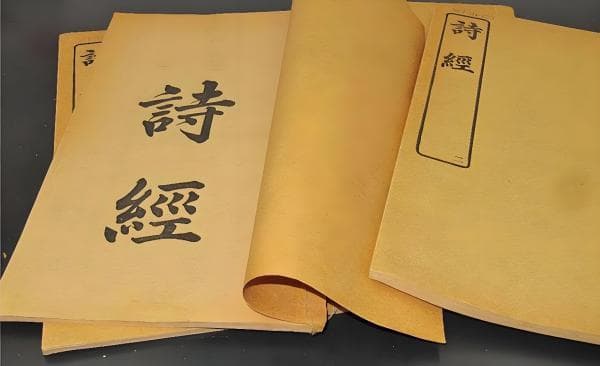 詩
經
詩
經
二
詩